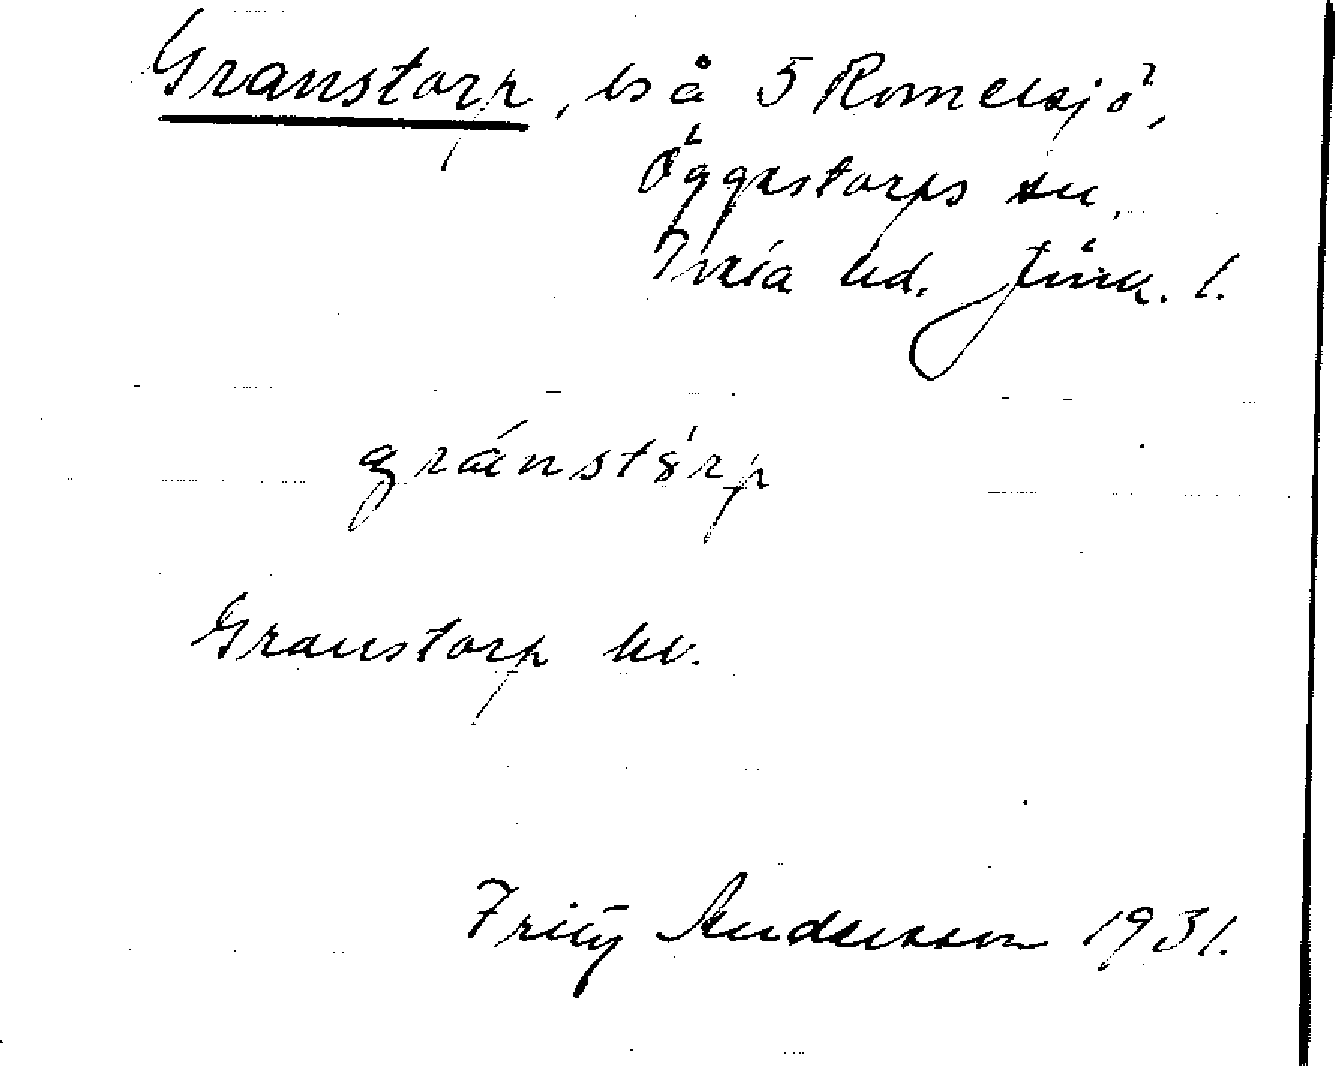 Granstorp, ls å 5 Romelsjö,
Öggestorps sn,
Tveta hd. Jönk. l.
gránstórp
Granstorp kv.
Fritz Andersson 1931.